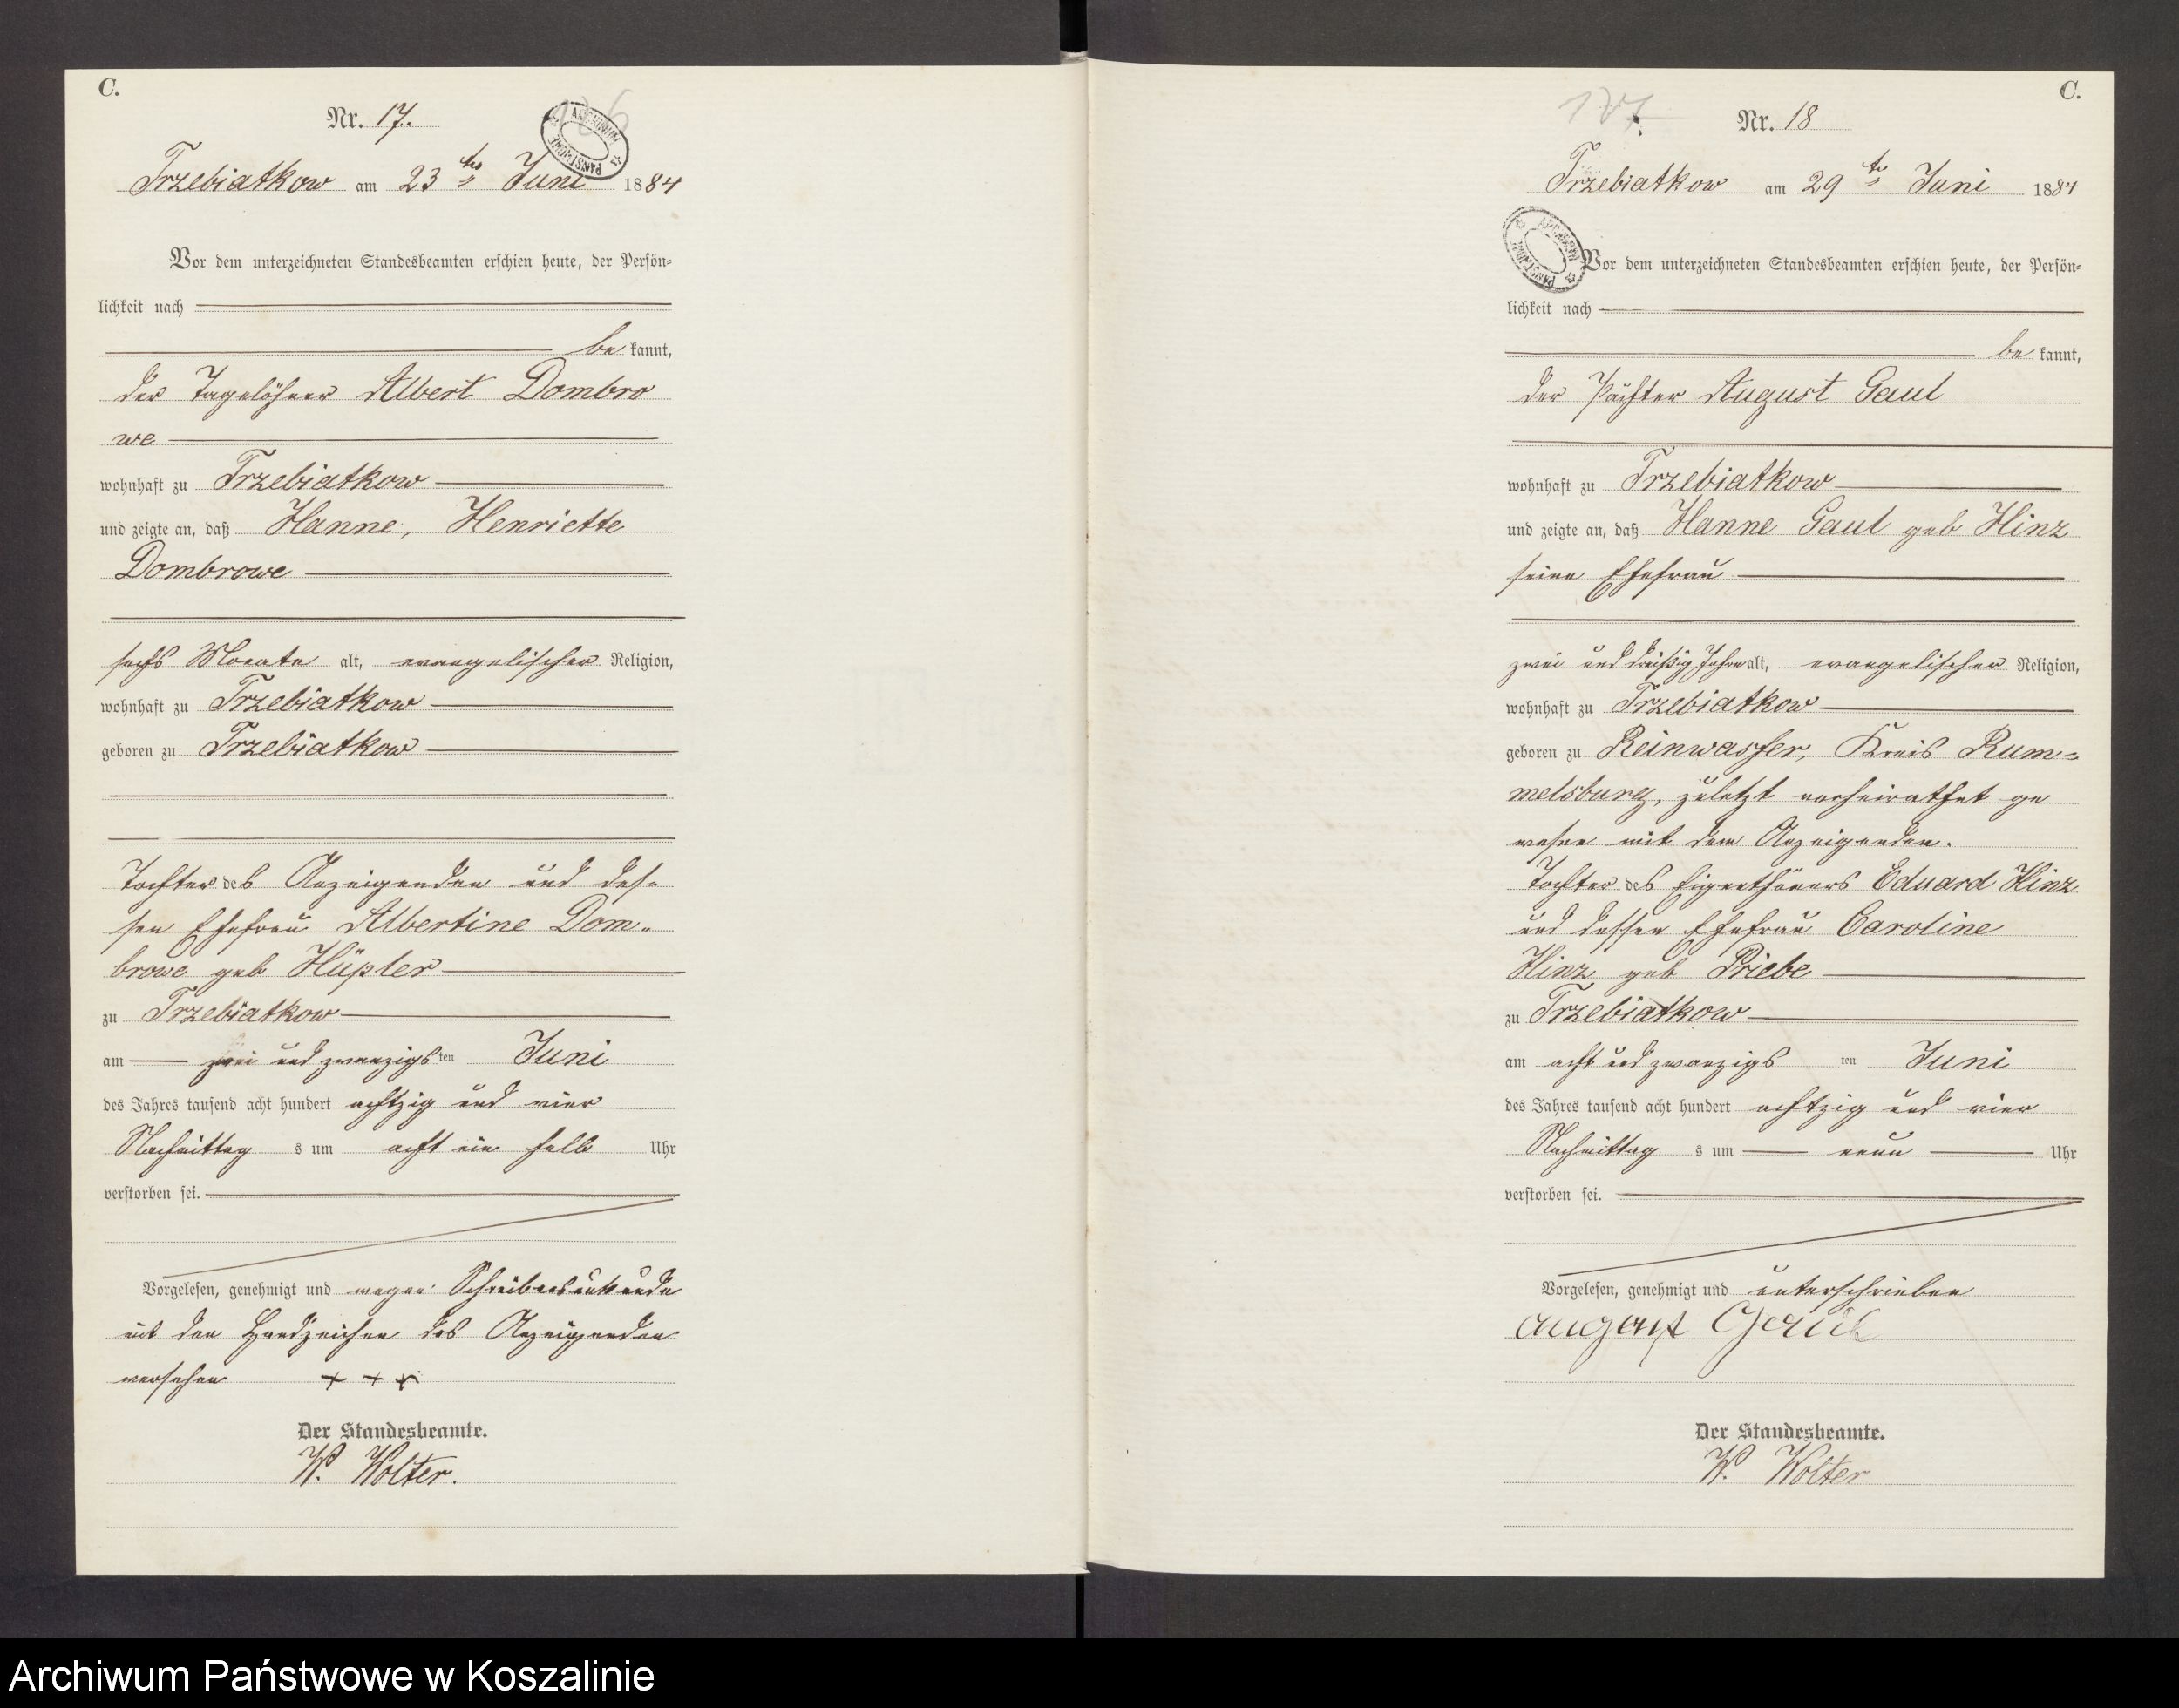 C.
Nr. 17.
Trzebiatkow am 23ten Juni 1884
Vor dem unterzeichneten Standesbeamten erschien heute, der Persön-
lichkeit nach
be kannt,
der Tagelöhner Albert Dombro
we
wohnhaft zu Trzebiatkow
und zeigte an, daß Hanne, Henriette
Dombrowe
sechs Monate alt, evangelischer Religion,
wohnhaft zu Trzebiatkow
geboren zu Trzebiatkow
Tochter des Anzeigenden und des-
sen Ehefrau Albertine Dom-
browe geb Hüpler
zu Trzebiatkow
am zwei und zwanzigsten Juni
des Jahres tausend acht hundert achtzig und vier
Nachmittags um acht ein halb Uhr
verstorben sei.
Vorgelesen, genehmigt und wegen Schreibensunkunde
mit den Handzeichen des Anzeigenden
versehen + + +
Der Standesbeamte.
W. Wolter.
C.
177
Nr. 18
Trzebiatkow am 29ten Juni 1884
Vor dem unterzeichneten Standesbeamten erschien heute, der Persön-
lichkeit nach
be kannt,
der Pächter August Gaul
wohnhaft zu Trzebiatkow
und zeigte an, daß Hanne Gaul geb Hinz
seine Ehefrau
zwei und dreißig Jahre alt, evangelischer Religion,
wohnhaft zu Trzebiatkow
geboren zu Reinwasser, Kreis Rum-
melsburg, zuletzt verheirathet ge
wesen mit dem Anzeigenden.
Tochter des Eigenthümers Eduard Hinz
und dessen Ehefrau Caroline
Hinz geb Priebe
zu Trzebiatkow
am acht und zwanzigsten Juni
des Jahres tausend acht hundert achtzig und vier
Nachmittags um neun Uhr
verstorben sei.
Vorgelesen, genehmigt und unterschrieben
august Gaul
Der Standesbeamte.
W. Wolter
Archiwum Państwowe w Koszalinie